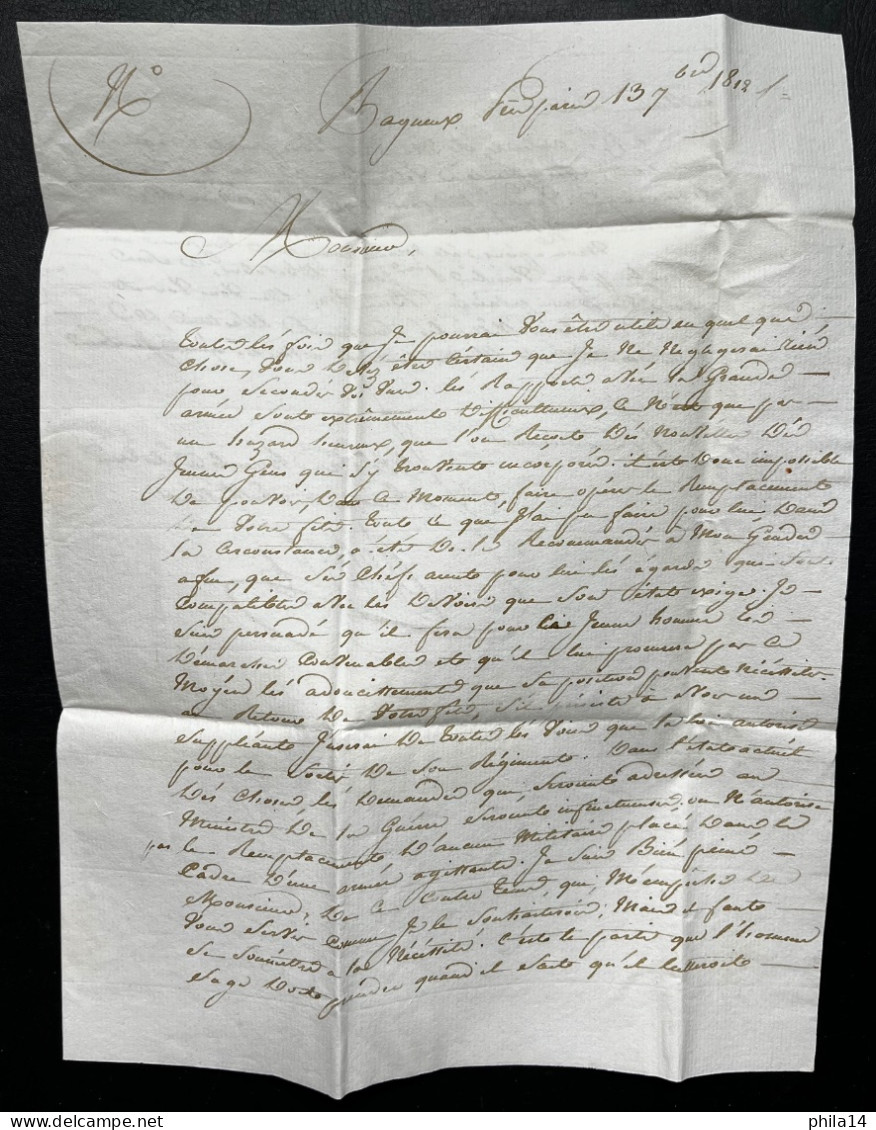 N°
Bayeux 13 7bre 1812
Monsieur,
Toutes les fois que Je pourrai vous être utile en quelque
Chose, Vous devez être Certain que Je Ne Negligerai rien
pour Seconder Vos Vues. les Rapports avec la Grande
armée sont extrêmement difficultueux, Ce N'est que par
un hazard heureux, que l'on Reçoit Des Nouvelles Des
Jeunes Gens qui s'y trouvent incorporés. il est Donc impossible
De pouvoir, Dans Ce Moment, faire opérer le Remplacement
De Votre fils. Toute Ce que J'ai pu faire pour lui Dans
la Circonstance, a été De le Recommander à Mon Gendre
afin, que Ses Chefs aient pour lui les égards qui sont
Compatibles avec les Devoirs que Son état exige. Je
suis persuadé qu'il fera pour le Jeune homme les
Démarches Convenables et qu'il lui procurera par Ce
Moyen les adoucissements que Sa position peuvent Nécessiter
au Retour De Votre fils, S'il persiste à avoir un
Suppléant J'userai De toutes les Voies que la loi autorise
pour le sortir De Son Régiment. Dans l'état actuel
Des Choses les Demandes que, seroient adressées au
Ministre De la Guerre seroient infructueuses. on N'autorise
pas le Remplacement D'aucun Militaire placé Dans le
Cadre D'une armée agissante. Je Suis Bien peiné
Monsieur, De Ce Contre tems, qui, M'empêche De
Vous Servir Comme Je le Souhaiterois; Mais il faut
Se Soumettre à la Nécessité. C'est le parti que l'homme
Sage Doit prendre quand il Sait qu'il lutteroit
phila14